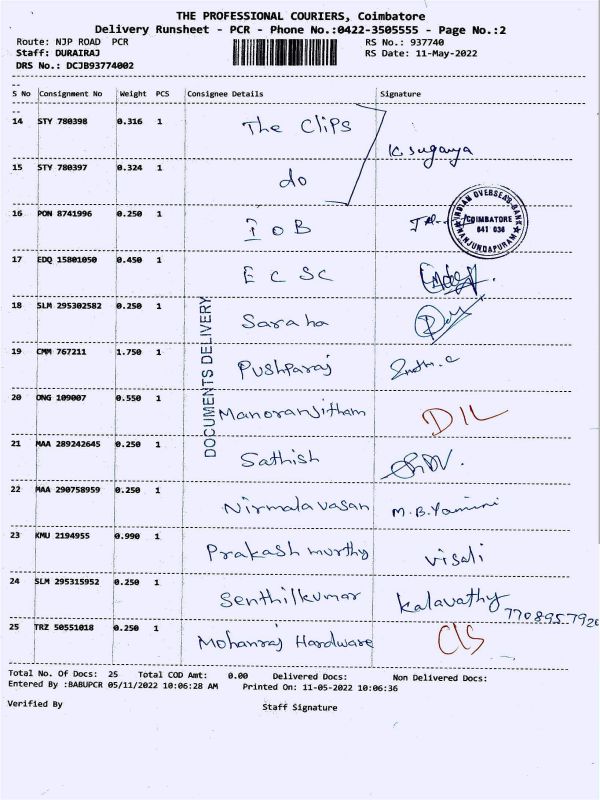 THE PROFESSIONAL COURIERS, Coimbatore
Delivery Runsheet - PCR - Phone No.:0422-3505555 - Page No.:2
Route: NJP ROAD PCR RS No.: 937740
Staff: DURAIRAJ RS Date: 11-May-2022
DRS No.: DCJB93774002
S No Consignment No Weight PCS Consignee Details Signature
14 STY 780398 0.316 1 The Clips
K. Suganya
15 STY 780397 0.324 1 do
16 PON 8741996 0.250 1 IOB
INDIAN OVERSEAS BANK
COIMBATORE
641 036
NANJUNDAPURAM
17 EDQ 15801050 0.450 1 ECSC
18 SLM 295302582 0.250 1 Saraha
DOCUMENTS DELIVERY
19 CMM 767211 1.750 1 Pushparaj
20 ONG 109007 0.550 1 Manoranjitham DIL
21 MAA 289242645 0.250 1 Sathish
22 MAA 290758959 0.250 1 Nirmala vasan M.B.Yamini
23 KMU 2194955 0.990 1 Prakash murthy Visali
24 SLM 295315952 0.250 1 Senthilkumar Kalavathy
25 TRZ 50551018 0.250 1 Mohanraj Hardware CLS
Total No. Of Docs: 25 Total COD Amt: 0.00 Delivered Docs: Non Delivered Docs:
Entered By :BABUPCR 05/11/2022 10:06:28 AM Printed On: 11-05-2022 10:06:36
Verified By Staff Signature